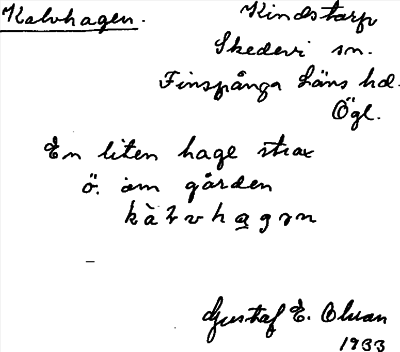 Kalvhagen.
Kindstorp
Skedevi sn.
Finspånga läns hd.
Ögl.
En liten hage strax
ö. om gården
Gustaf E. Olsson
1933